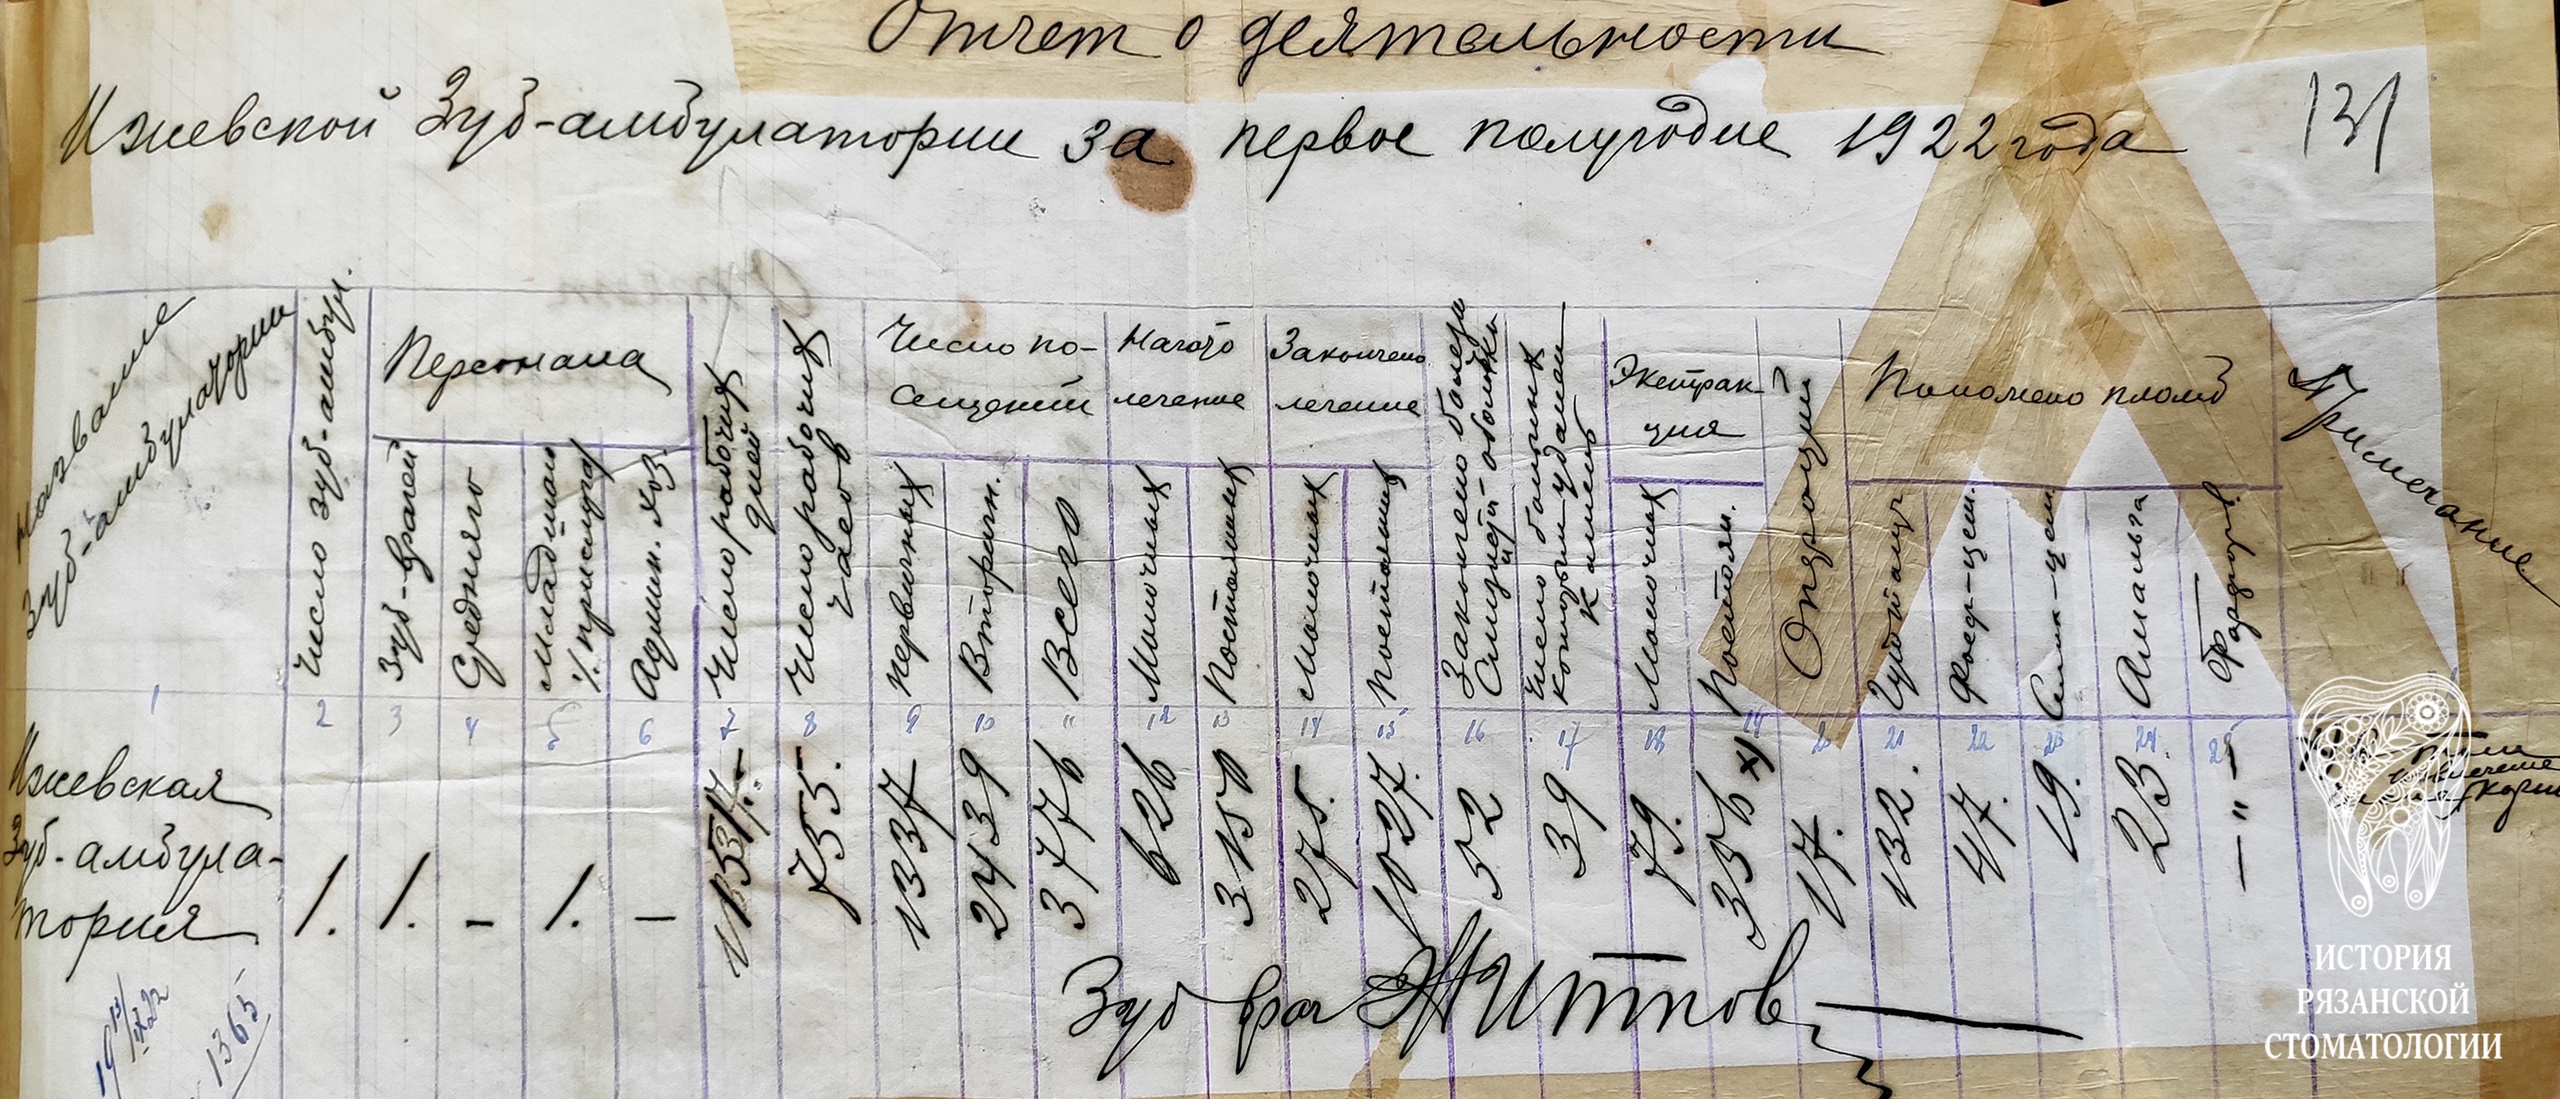 Отчет о деятельности
Ижевской Зуб-амбулатории за первое полугодие 1922 года
131
Название
Зуб-амбулатории
Число зуб-амбул.
Персонала
Зуб-врачей
Среднего
Младшаго
Админ. хоз.
Число рабочих
дней
Число рабочих
часов
Число по-
сещений
Первичных
Вторичн.
Всего
Начато
лечение
Молочных
Постоянных
Закончено
лечение
Молочных
Постоянных
Закончено болезн
Слизист оболочки
Число больных
которым удален
камень
Экстрак-
ция
Молочных
Постоян.
Положено пломб
Фосф-цем.
Амальга
Примечание
1 2 3 4 5 6 7 8 9 10 11 12 13 14 15 16 17 18 19 20 21 22 23 24 25
Ижевская
Зуб-амбула-
тория
1. 1. - 1. - 753. 1337 2439 3776 626 3150 275. 1027. 52 39 79. 356 х) 17. 132. 47. 19. 23. — " —
Зуб врач Житков
19 13/IX 22
1365
ИСТОРИЯ
РЯЗАНСКОЙ
СТОМАТОЛОГИИ